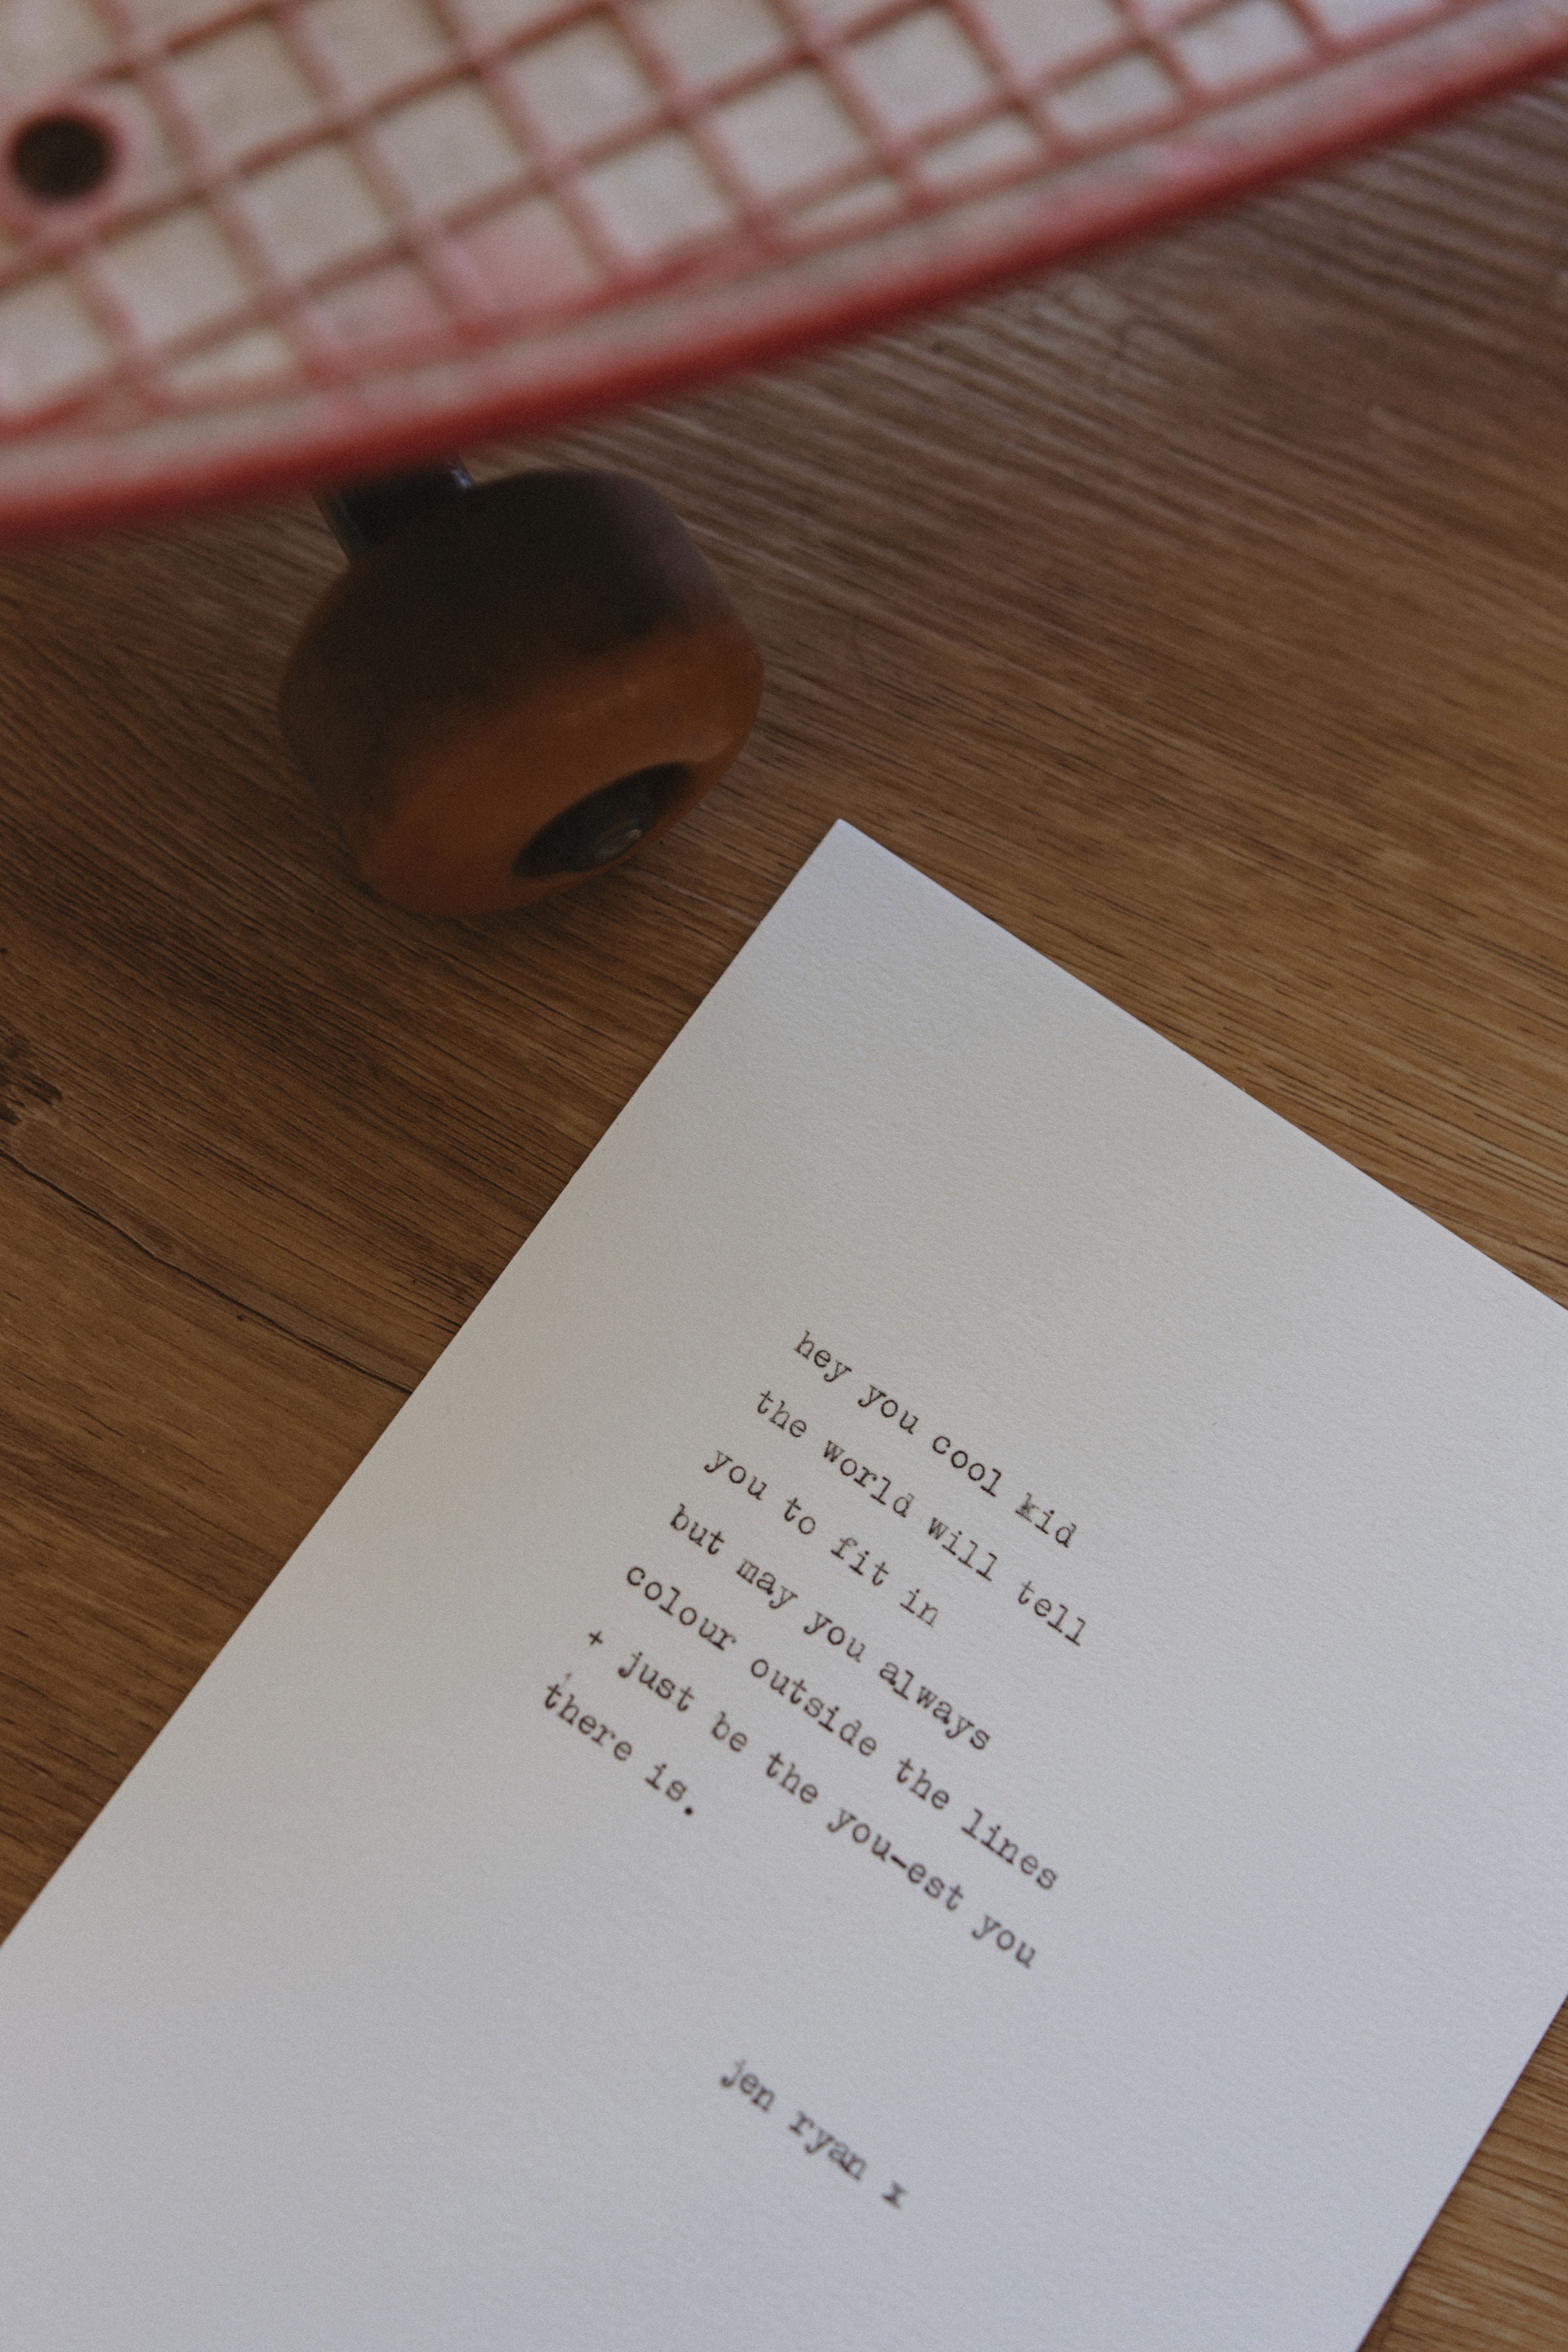 hey you cool kid
the world will tell
you to fit in
but may you always
colour outside the lines
+ just be the you-est you
there is.
jen ryan x